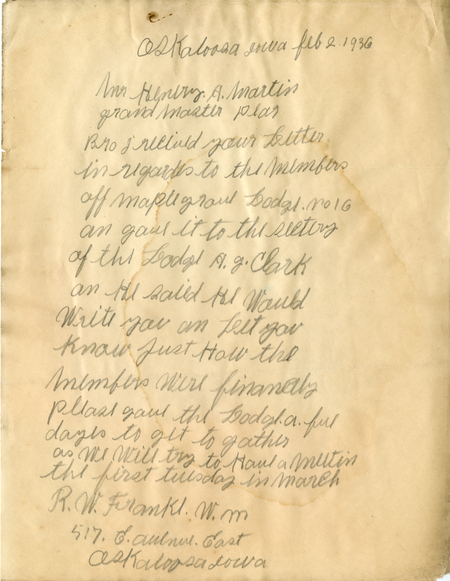 Oskaloosa Iowa feb 2. 1936
Mr Henery. A. Martin
grand Master Dear
Bro j recievd your Letter
in regards to the Members
off maple grove Lodge. no 16
an gave it to the
of the Lodge A. g. Clark
an He saied He Would
Write you an Let you
Know Just How the
Members Were
please gave the Lodge. a. fue
dayes to git to gather
as We Will try to Have a Meetin
the first tuesday in March
R. W. Frankl. W. m
517. C. avenue. East
Oskaloosa Iowa